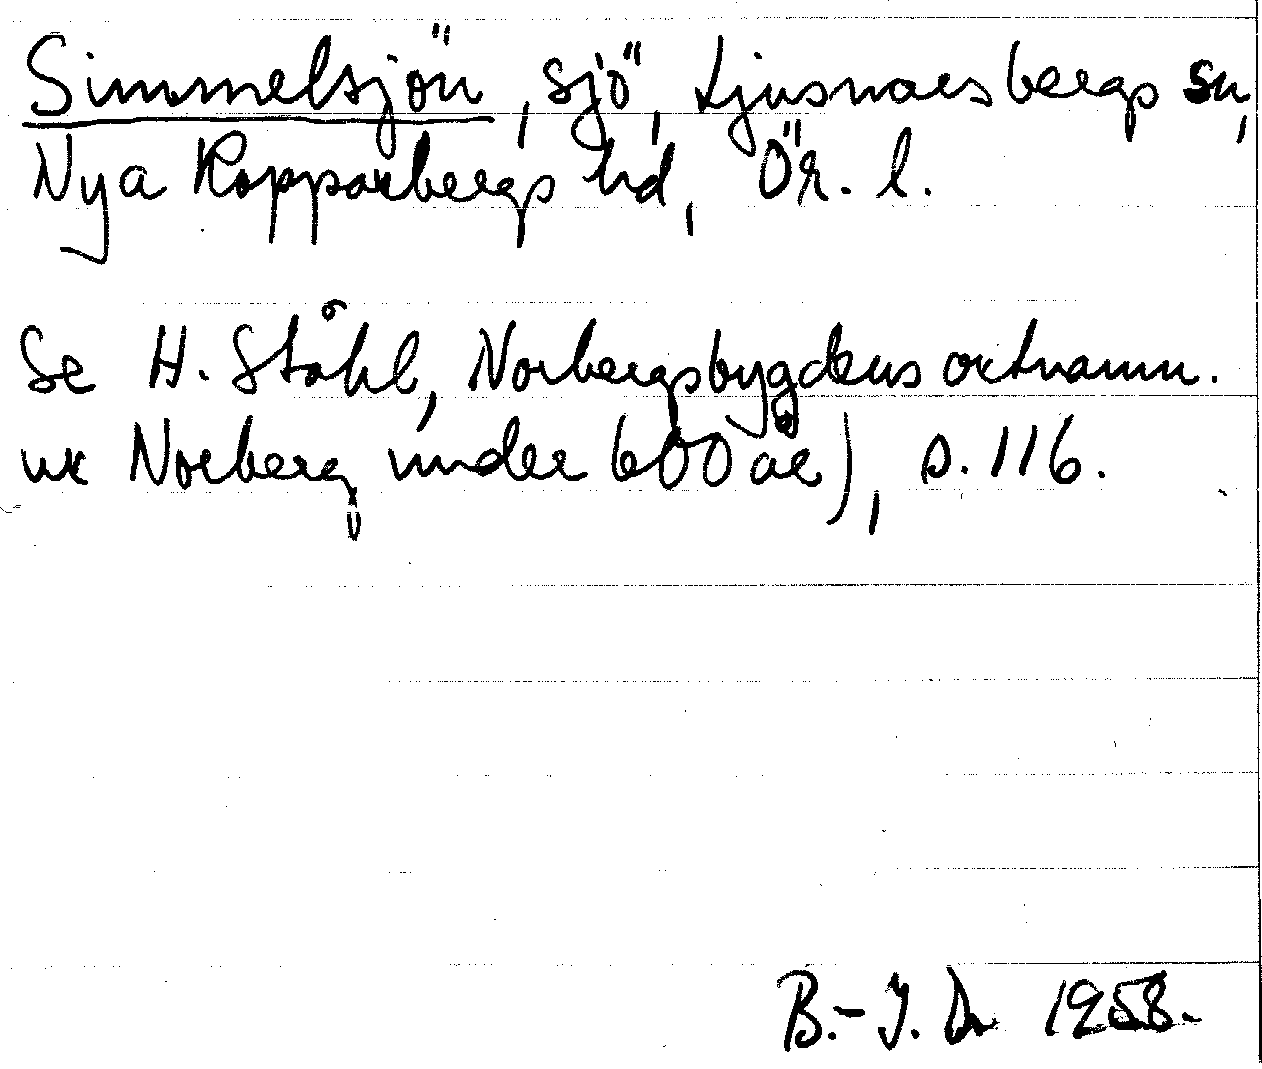 Simmelsjön, sjö, Ljusnarsbergs sn,
Nya Kopparbergs hd, Ör. l.
Se H. Ståhl, Norbergsbygdens ortnamn.
ur Norberg under 600 år), s. 116.
B.-I. 1958.